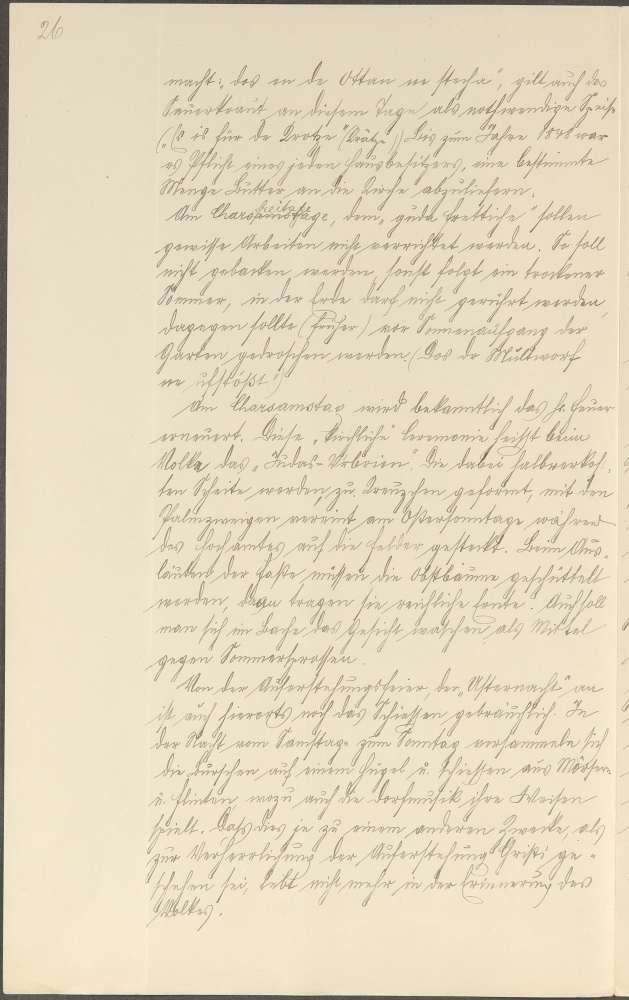 26
macht: „das en de Ottan ne stecha“, gilt auch das
Sauerkraut an diesem Tage als nothwendige Speise
(„Es is für de Krotze“ (Krätze)) Bis zum Jahre 1848 war
es Pflicht eines jeden Hausbesitzers, eine bestimmte
Menge Butter an die Kirche abzuliefern.
freitage
Am Charsamstage, dem „guda Frettiche“ sollen
gewisse Arbeiten nicht verrichtet werden. So soll
nicht gebacken werden, sonst folgt ein trockener
Sommer, in der Erde darf nicht gerührt werden,
dagegen sollte (früher) vor Sonnenaufgang der
Garten gedroschen werden. (Dos de Multworf
ne ufstößt“)
Am Charsamstag wird bekanntlich das hl. Feuer
erneuert. Diese „kirchliche“ Ceremonie heißt beim
Volke das „Judas-Vrbrien“. Die dabei halbverkohl-
ten Scheite werden zu Kreuzchen geformt, mit den
Palmzweigen vereint am Ostersonntage während
des Hochamtes auf die Felder gesteckt. Beim Aus-
läuten der Faste müssen die Obstbäume geschüttelt
werden, dann tragen sie reichliche Ernte. Auch soll
man sich im Bache das Gesicht waschen als Mittel
gegen Sommersprossen.
Von der Auferstehungsfeier, der „Usternacht“ an
ist auch hierorts noch das Schiessen gebräuchlich. In
der Nacht vom Samstag zum Sonntag versammeln sich
die Burschen auf einem Hügel u. schiessen aus Mörsern
u. Flinten, wozu auch die Dorfmusik ihre Weisen
spielt. Dass dies je zu einem anderen Zwecke, als
zur Verherrlichung der Auferstehung Christi ge-
schehen sei, lebt nicht mehr in der Erinnerung des
Volkes.